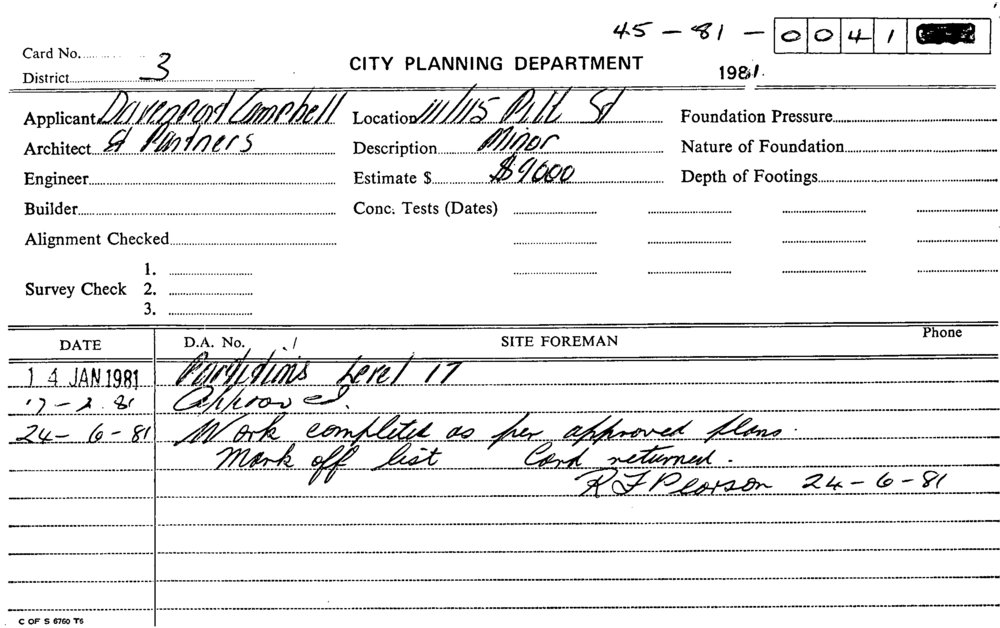 45-81-0041
Card No.
District 3
CITY PLANNING DEPARTMENT
1981.
Applicant Davenport Campbell
Location 111/115 Pitt St
Foundation Pressure
Architect & Partners
Description Minor
Nature of Foundation
Engineer
Estimate $ $9000
Depth of Footings
Builder
Conc. Tests (Dates)
Alignment Checked
1.
Survey Check 2.
3.
DATE D.A. No. SITE FOREMAN Phone
14 JAN 1981 Partitions Level 17
81 Approved.
24-6-81 Work completed as per approved plans.
Mark off list Card returned.
R F Pearson 24-6-81
C OF S 6760 T6